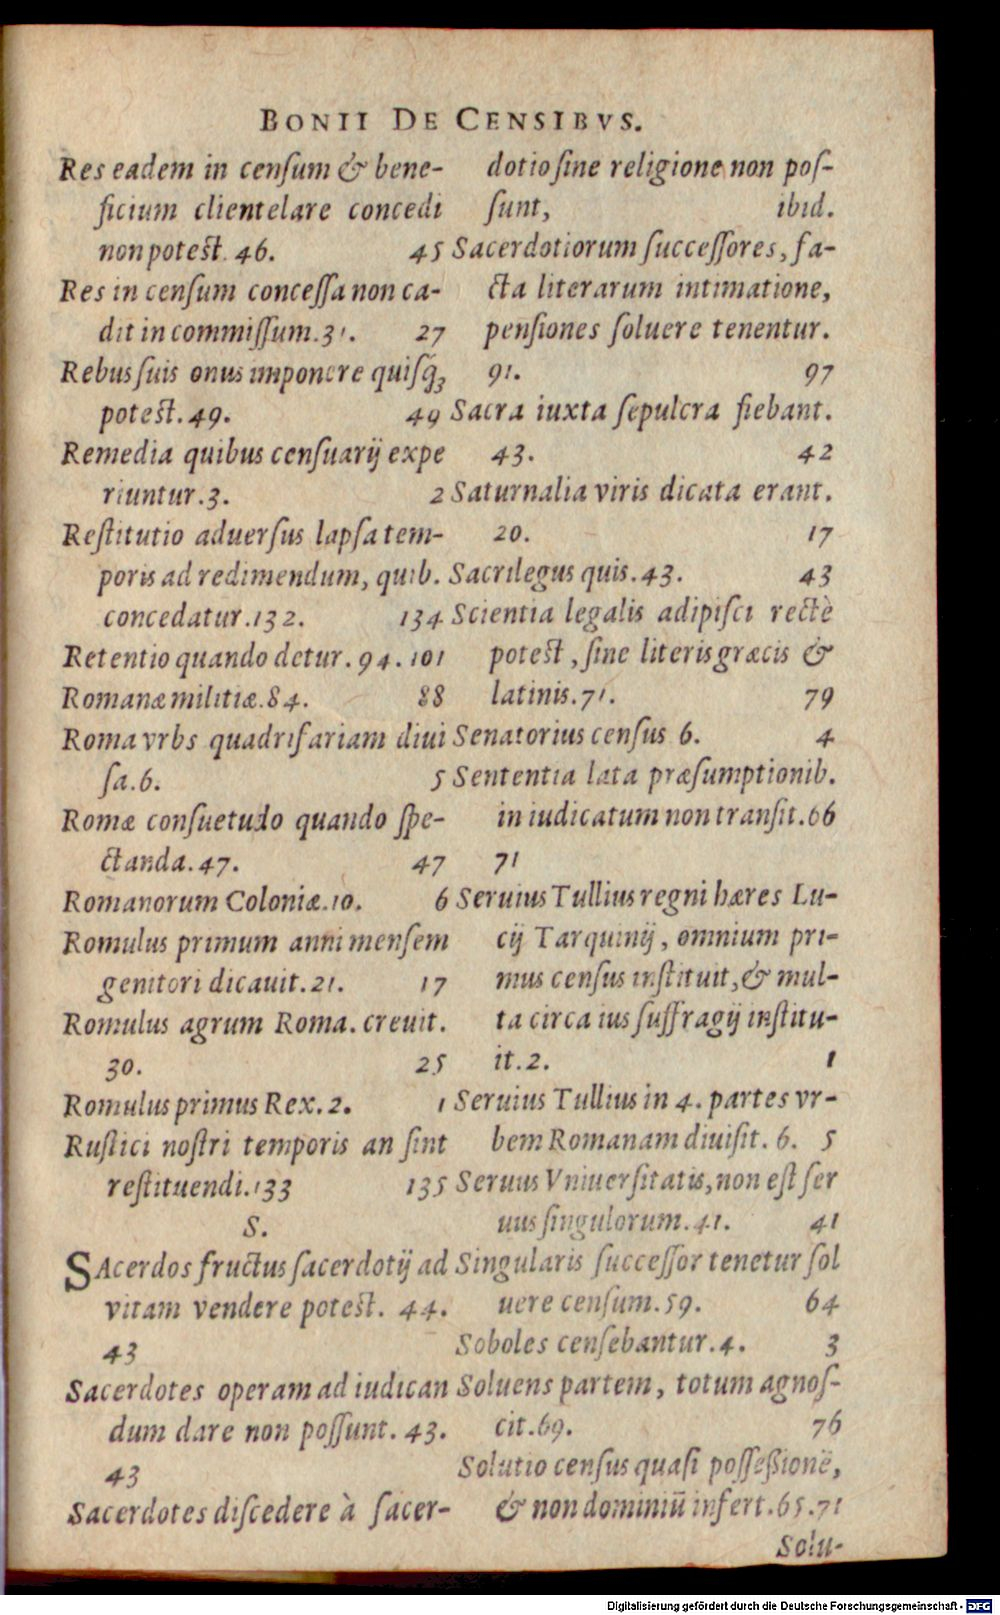 BONII DE CENSIBVS.
Res eadem in cenſum & bene-
ficium clientelare concedi
non poteſt. 46. 45
Res in cenſum conceſſa non ca-
dit in commiſſum. 31. 27
Rebus ſuis onus imponere quiſq́ꝫ
poteſt. 49. 49
Remedia quibus cenſuarij expe
riuntur. 3. 2
Reſtitutio aduerſus lapſa tem-
poris ad redimendum, quib.
concedatur. 132. 134
Retentio quando detur. 94. 101
Romanæ militiæ. 84. 88
Roma vrbs quadrifariam diui
ſa. 6. 5
Romæ conſuetudo quando ſpe-
ctanda. 47. 47
Romanorum Coloniæ. 10. 6
Romulus primum anni menſem
genitori dicauit. 21. 17
Romulus agrum Roma. creuit.
30. 25
Romulus primus Rex. 2. 1
Ruſtici noſtri temporis an ſint
reſtituendi. 133 135
S.
SAcerdos fructus ſacerdotij ad
vitam vendere poteſt. 44.
43
Sacerdotes operam ad iudican
dum dare non poſſunt. 43.
43
Sacerdotes diſcedere à ſacer-
dotio ſine religione non poſ-
ſunt, ibid.
Sacerdotiorum ſucceſſores, fa-
cta literarum intimatione,
penſiones ſoluere tenentur.
91. 97
Sacra iuxta ſepulcra fiebant.
43. 42
Saturnalia viris dicata erant.
20. 17
Sacrilegus quis. 43. 43
Scientia legalis adipiſci rectè
poteſt, ſine literis græcis &
latinis. 71. 79
Senatorius cenſus 6. 4
Sententia lata præſumptionib.
in iudicatum non tranſit. 66
71
Seruius Tullius regni hæres Lu-
cij Tarquinij, omnium pri-
mus cenſus inſtituit, & mul-
ta circa ius ſuffragij inſtitu-
it. 2. 1
Seruius Tullius in 4. partes vr-
bem Romanam diuiſit. 6. 5
Seruus Vniuerſitatis, non eſt ſer
uus ſingulorum. 41. 41
Singularis ſucceſſor tenetur ſol
uere cenſum. 59. 64
Soboles cenſebantur. 4. 3
Soluens partem, totum agnoſ-
cit. 69. 76
Solutio cenſus quaſi poſſeßionē,
& non dominiū infert. 65. 71
Solu-
Digitalisierung gefördert durch die Deutsche Forschungsgemeinschaft - DFG